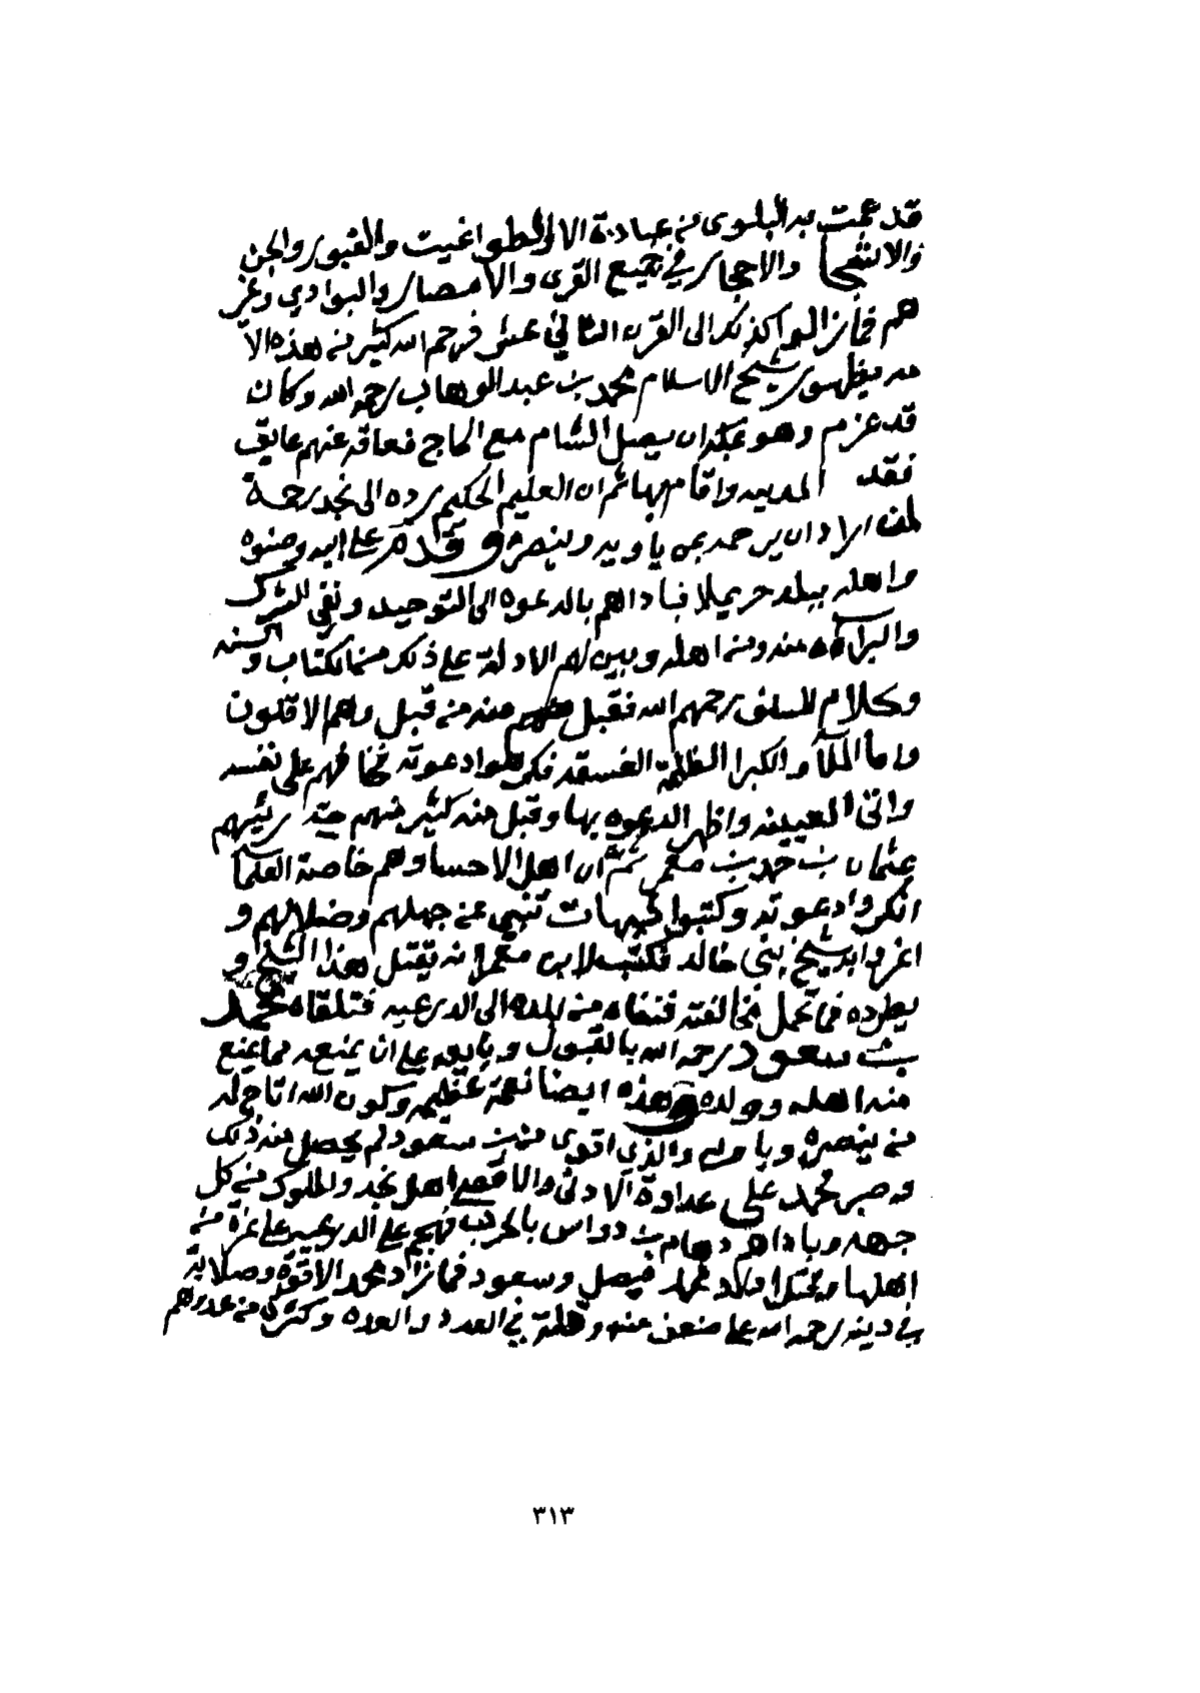 قد عمت به البلوى من عبادة الا والطواغيت والقبور والجن
والاشجا والاحجار في جميع القرى والامصار والبوادي وغير
هم فما زالوا كذلك الى القرن الثاني عشر فرحم الله كثير من هذه الا
مه بظهور شيخ الاسلام محمد بن عبد الوهاب رحمه الله وكان
قد عزم وهو بمكة ان يصل الشام مع الحاج فعاقه عنهم عايق
فقد المدينه واقام بها ثم ان العليم الحكيم رده الى نجد رحمة
لمن اراد ان يرحمه بمن ياويه وينصره وقدم على ابيه وصنوه
واهله ببلد حريملا فباداهم بالدعوه الى التوحيد ونفي الشرك
والبرآة منه ومن اهله وبين لهم الادلة على ذلك من الكتاب والسنه
وكلام السلف رحمهم الله فقبل منه من قبل وهم الاقلون
واما الملأ والكبرا الظلمة الفسقه فكرهوا دعوته فخافهم على نفسه
واتى العيينه واظهر الدعوه بها وقبل منه كثير منهم حتى رئيسهم
عثمان بن حمد بن معمر ثم ان اهل الاحسا وهم خاصة العلمآ
انكروا دعوته وكتبوا شبهات تنبي عن جهلهم وضلالهم و
اغروا به شيخ بني خالد فكتب لابن معمر ان يقتل هذا الشيخ او
يطرده فما تحمل مخالفته فنفاه من بلده الى الدرعيه فتلقاه محمد
بن سعود رحمه الله بالقبول وبايعه على ان يمنعه مما يمنع
منه اهله وولده وهذه ايضا نعمة عظيمه وكون الله اتاح له
من ينصره وياويه والذي اقوى من بن سعود لم يحصل منه ذلك
وصبر محمد على عداوة الادنى والاقصى اهل نجد والملوك من كل
جهه وباداهم دهام بن دواس بالحرب فهجم على الدرعيه على غرة من
اهلها وقتل اولاد محمد فيصل وسعود فما زاد محمد الا قوة وصلابة
في دينه رحمه الله على ضعف منه وقلة في العدد والعده وكثرة من عدوهم
٣١٣